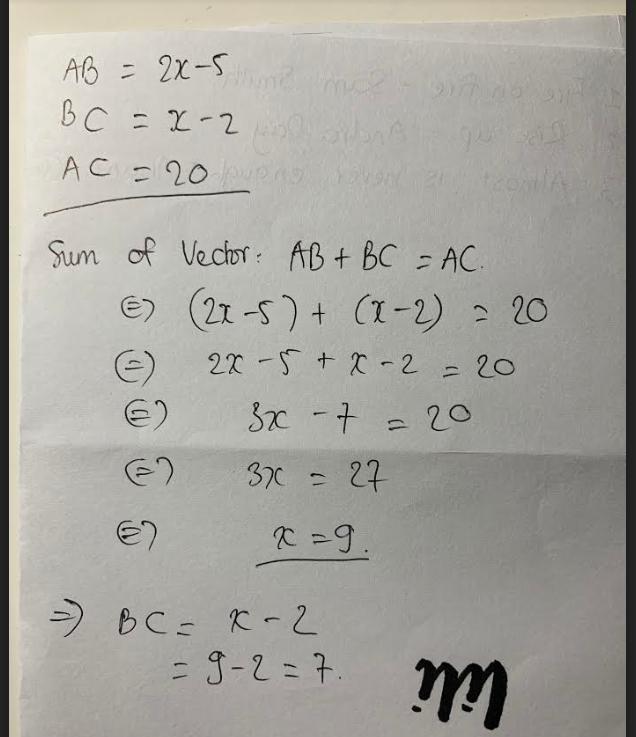 AB = 2x-5
BC = x-2
AC = 20
Sum of Vector: AB + BC = AC.
⇔ (2x-5) + (x-2) = 20
⇔ 2x - 5 + x - 2 = 20
⇔ 3x - 7 = 20
⇔ 3x = 27
⇔ x = 9.
⇒ BC = x - 2
= 9-2 = 7.